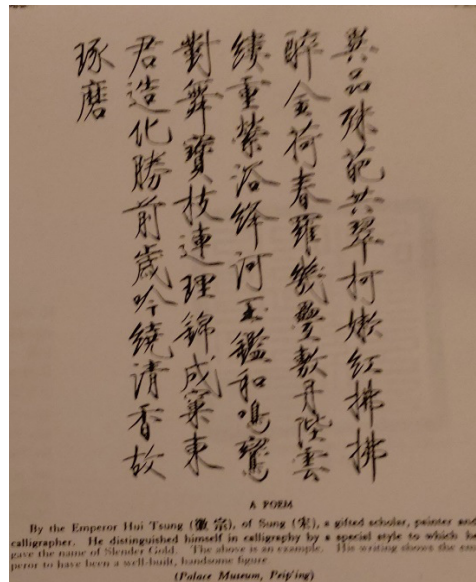 異品殊葩共翠柯嫩紅拂拂
醉金荷春羅幾疊敷丹陛雲
縷重縈浴絳河玉鑑和鳴鸞
對舞寶枝連理錦成窠東
君造化勝前歲吟繞清香故
琢磨
A POEM
By the Emperor Hui Tsung (徽宗), of Sung (宋), a gifted scholar, painter and
calligrapher. He distinguished himself in calligraphy by a special style to which he
gave the name of Slender Gold. The above is an example. His writing shows the em-
peror to have been a well-built, handsome figure
(Palace Museum, Peip'ing)